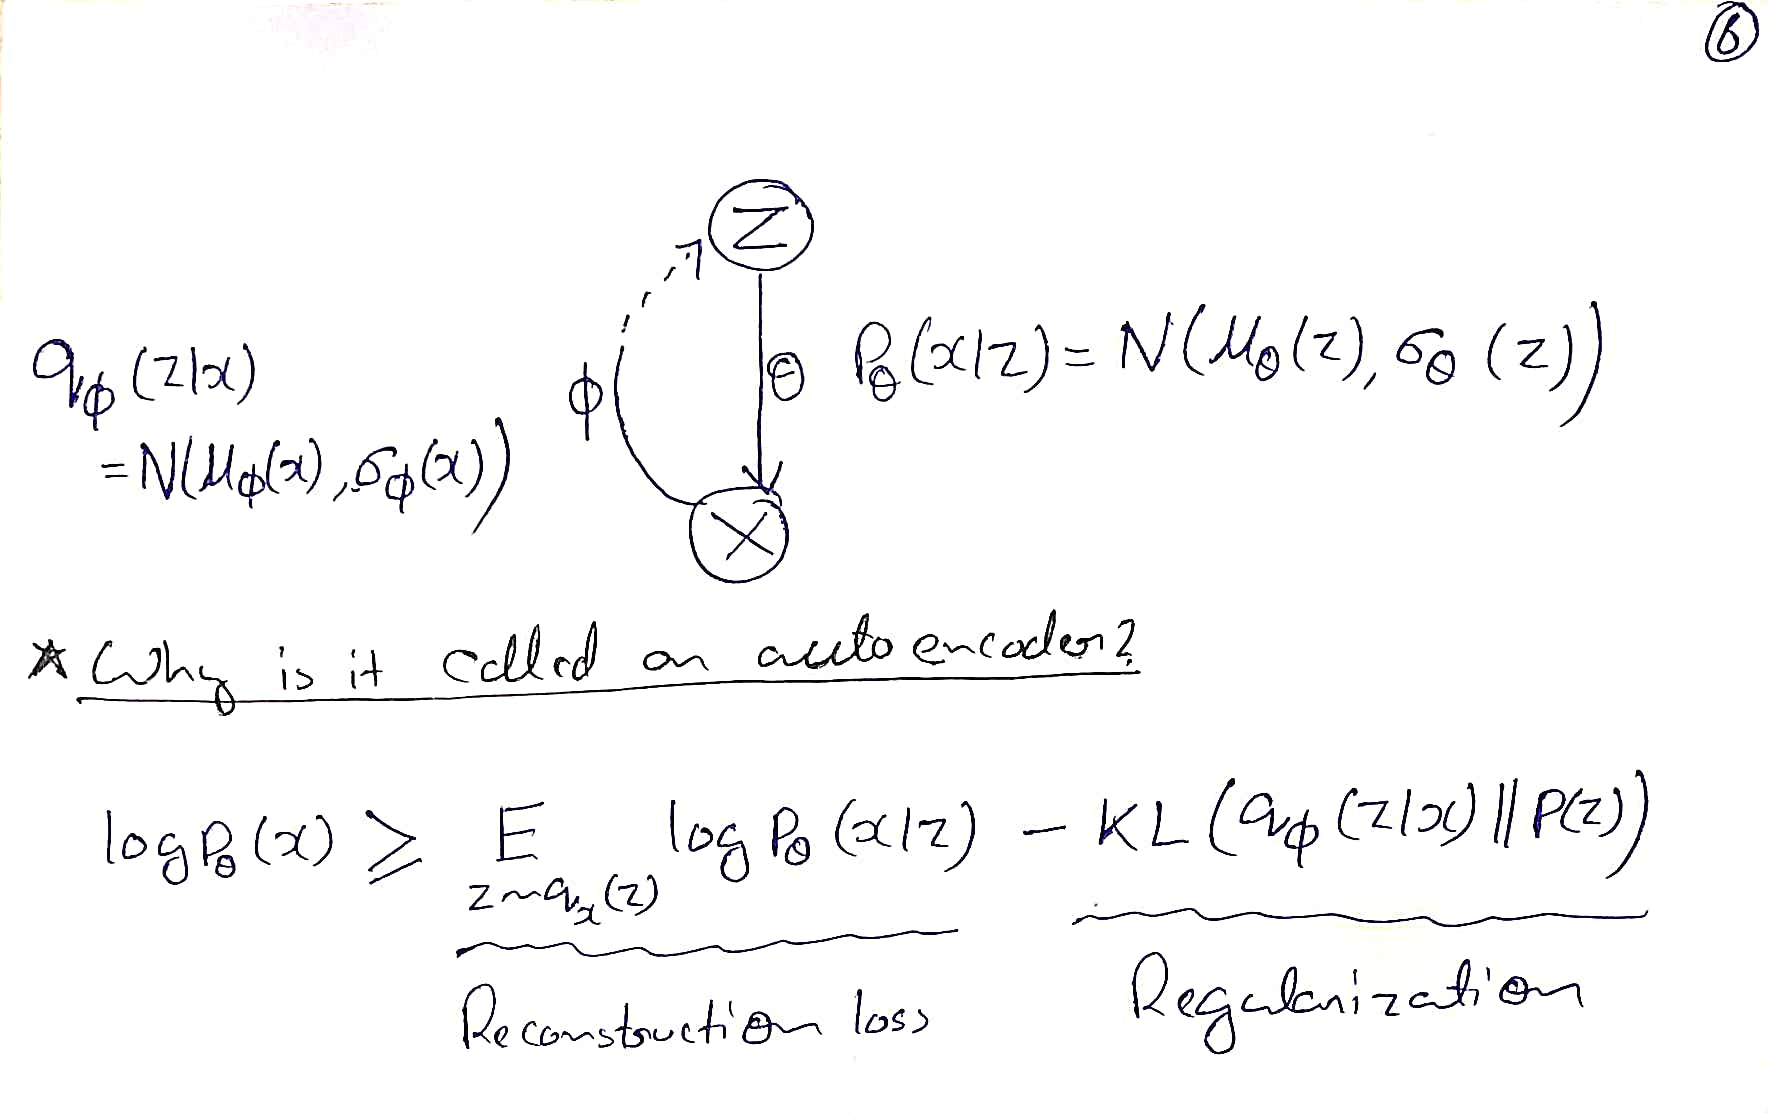 6
Z
qϕ(z|x)
=N(μϕ(x),σϕ(x))
ϕ
θ
Pθ(x|z)=N(μθ(z),σθ(z))
X
* Why is it called an auto encoder?
log Pθ(x) ≥ E log Pθ(x|z) - KL(qϕ(z|x)||P(z))
z~qx(z)
Reconstruction loss
Regularization